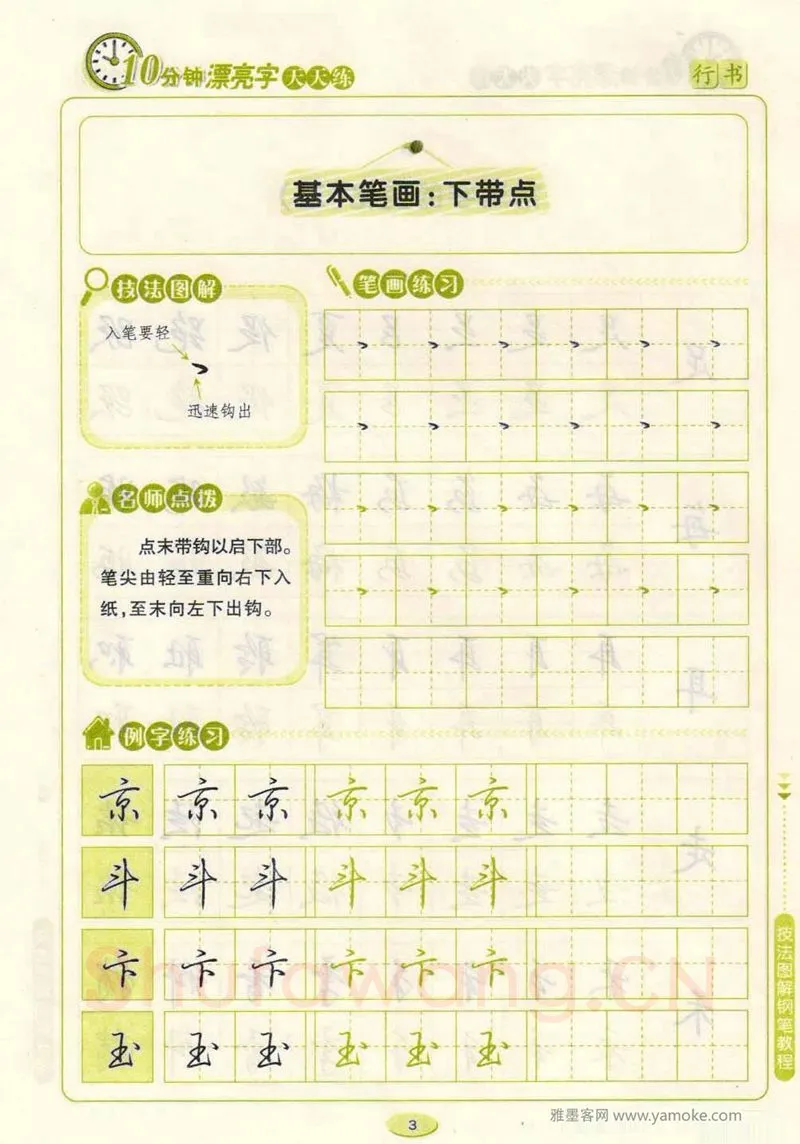 10分钟漂亮字天天练
行书
基本笔画:下带点
技法图解
入笔要轻
迅速钩出
笔画练习
名师点拨
点末带钩以启下部。
笔尖由轻至重向右下入
纸,至末向左下出钩。
例字练习
京 京 京 京 京 京
斗 斗 斗 斗 斗 斗
卞 卞 卞 卞 卞 卞
玉 玉 玉 玉 玉 玉
Shufawang.CN
技法图解钢笔教程
3
雅墨客网 www.yamoke.com